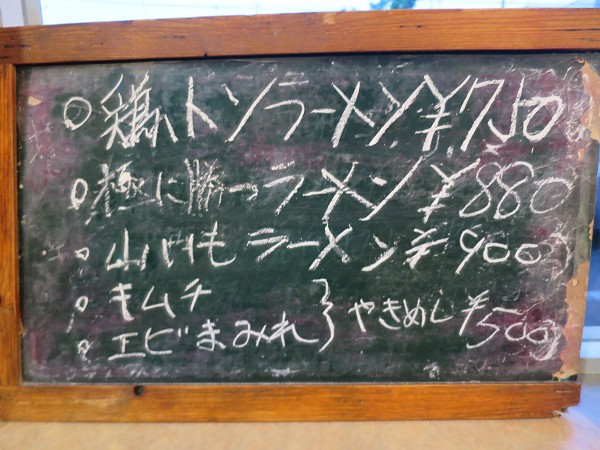 ○鶏トンラーメン¥750
○極に勝つラーメン¥880
ラーメン¥900
○キムチ
○エビまみれ } やきめし¥500